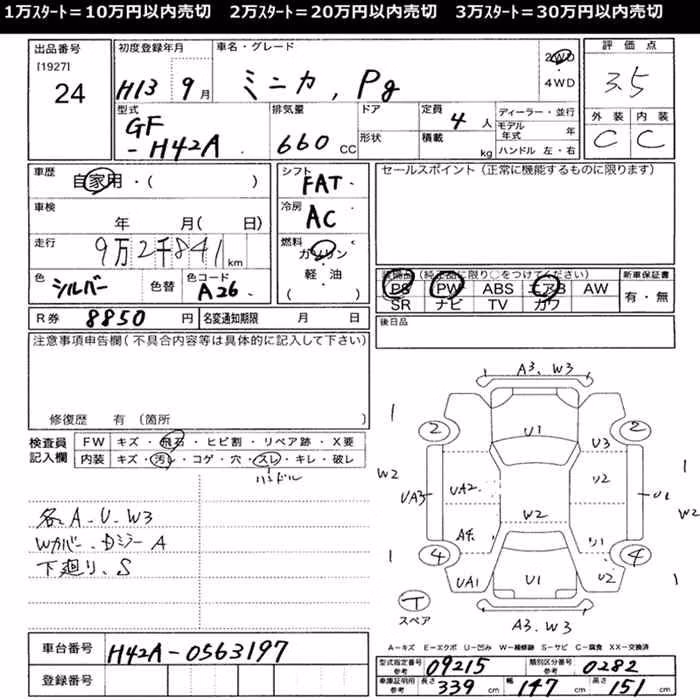 1万ｽﾀｰﾄ＝10万円以内売切　2万ｽﾀｰﾄ＝20万円以内売切　3万ｽﾀｰﾄ＝30万円以内売切
出品番号
[1927]
24
初度登録年月
H13 9月
車名・グレード
ミニカ, Pg
2WD
・4WD
評価点
3.5
型式
GF
-H42A
排気量
660 CC
ドア
形状
定員
4人
積載
kg
ディーラー・並行
モデル年式 年
ハンドル 左・右
外装 内装
C C
車歴
自家用・( )
車検
年 月( 日)
走行
9万2千841km
色
シルバー
色替
色コード
A26
シフト
FAT
冷房
AC
燃料
ガソリン
・軽・油
( )
セールスポイント (正常に機能するものに限ります)
装備品 (純正品に限り○をつけてください)
PS PW ABS エアB AW
SR ナビ TV カワ
新車保証書
有・無
R券 8850円
名変通知期限 月 日
後日品
注意事項申告欄 (不具合内容等は具体的に記入して下さい)
修復歴 有 〔箇所 〕
検査員
記入欄
FW キズ・飛石・ヒビ割・リペア跡・X要
内装 キズ・汚れ・コゲ・穴・スレ・キレ・破レ
ハンドル
各A.U.W3
Wカバー.Dミラー A
下廻り.S
A3.W3
1
2
2
U1
U3
1
W2
UA3
UA2
U2
W2
W2
A4
U1
1
4
4
1
UA1
U1
U2
T
スペア
A3.W3
A－キズ E－エクボ U－凹み W－補修跡 S－サビ C－腐食 XX－交換済
車台番号 H42A-0563197
登録番号
型式指定番号
参考
09215
類別区分番号
参考
0282
車庫証明用
参考
長さ 339cm 幅 147cm 高さ 151cm